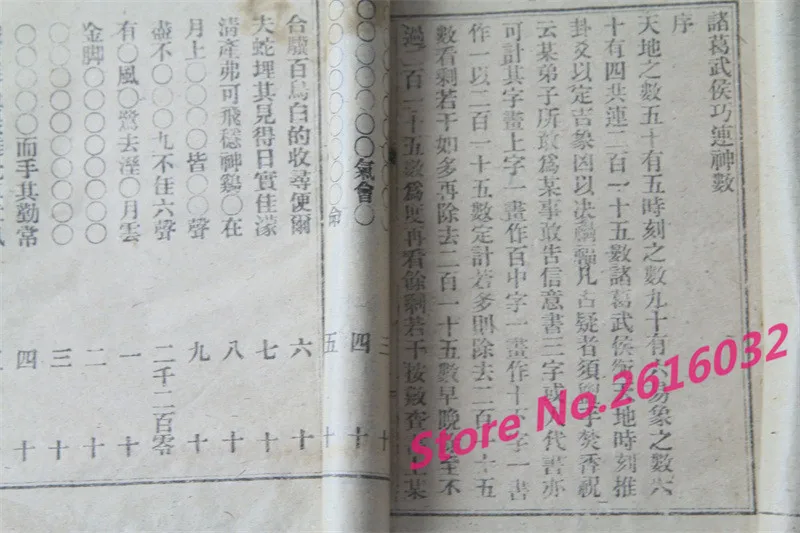 諸葛武侯巧連神數
序
天地之數五十有五時刻之數九十有六易象之數六
十有四共連二百一十五數諸葛武侯 天地時刻推
卦爻以定吉象凶以决禍福凡占疑者須 手焚香祝
云某弟子所敢爲某事敢告信意書三字或 代書亦
可計其字畫上字一畫作百中字一畫作十下字一畫
作一以二百一十五數定計若多則除去二百一十五
數看剩若干如多再除去二百一十五數早晚 至不
過二百一十五數爲度再看餘剩若干按數查 某
三十
氣會〇 四十
五十
合驗百鳥白的收尋便爾 六十
夫蛇埋其見得日實佳濛 七十
清產弗可飛穩神鷄〇在 八十
月上〇〇〇皆〇〇聲 九十
盡不〇〇九不住六聲 二千二百零
有〇風〇驚去溼〇月雲 一十
金脚〇〇〇〇〇〇〇〇 二十
〇〇〇〇〇〇〇〇〇〇 三十
〇〇〇〇〇而手其勤常 四十
Store No.2616032